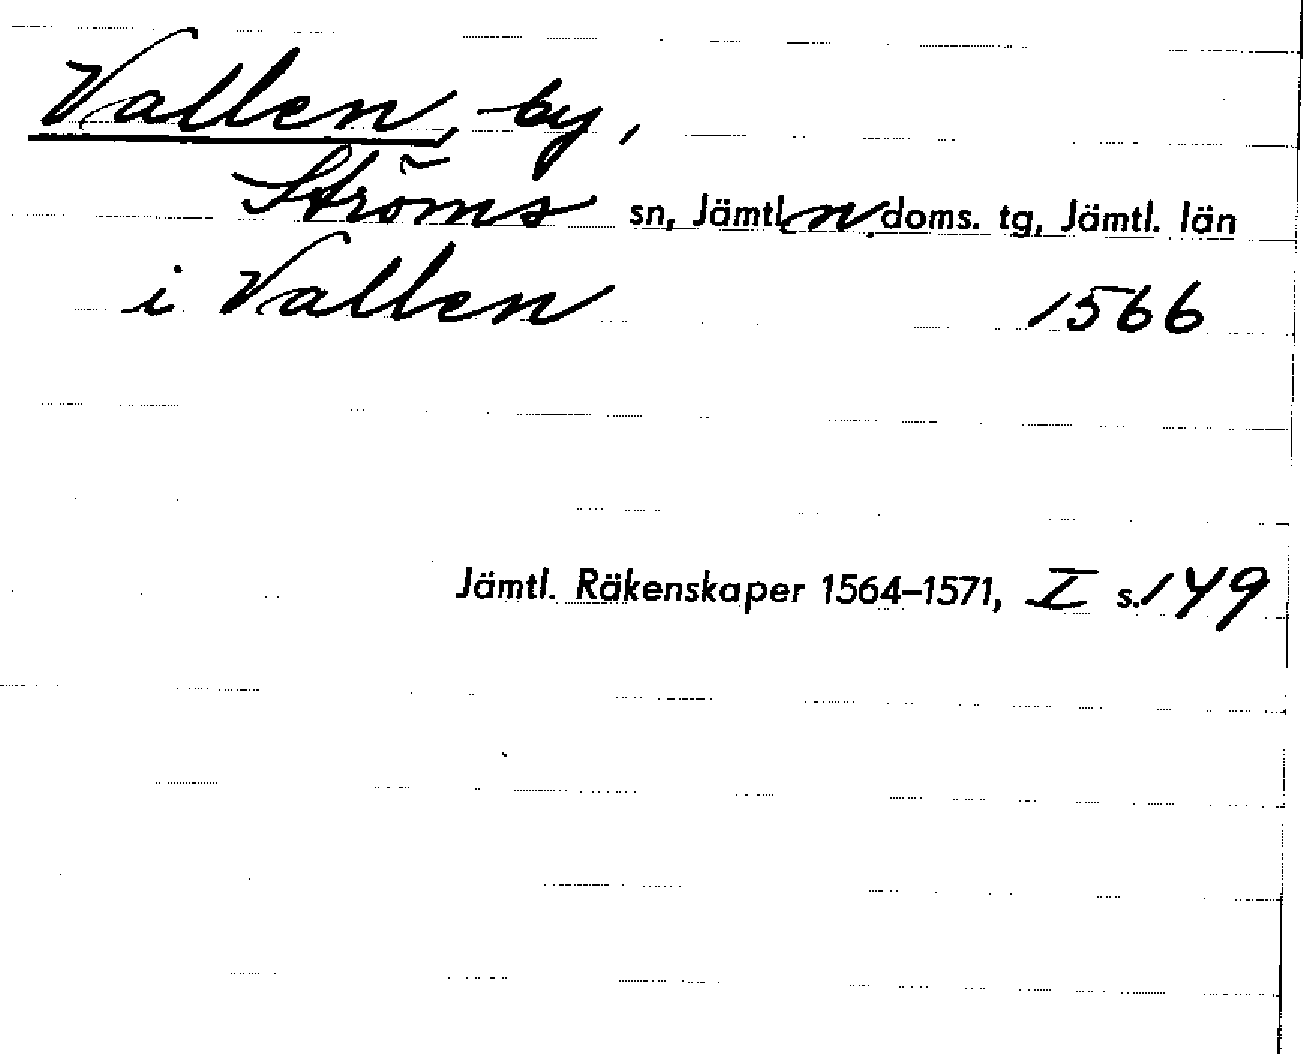 Vallen, by,
Ströms sn, Jämtl. n. doms. tg, Jämtl. län
i Vallen 1566
Jämtl. Räkenskaper 1564–1571, I s. 149